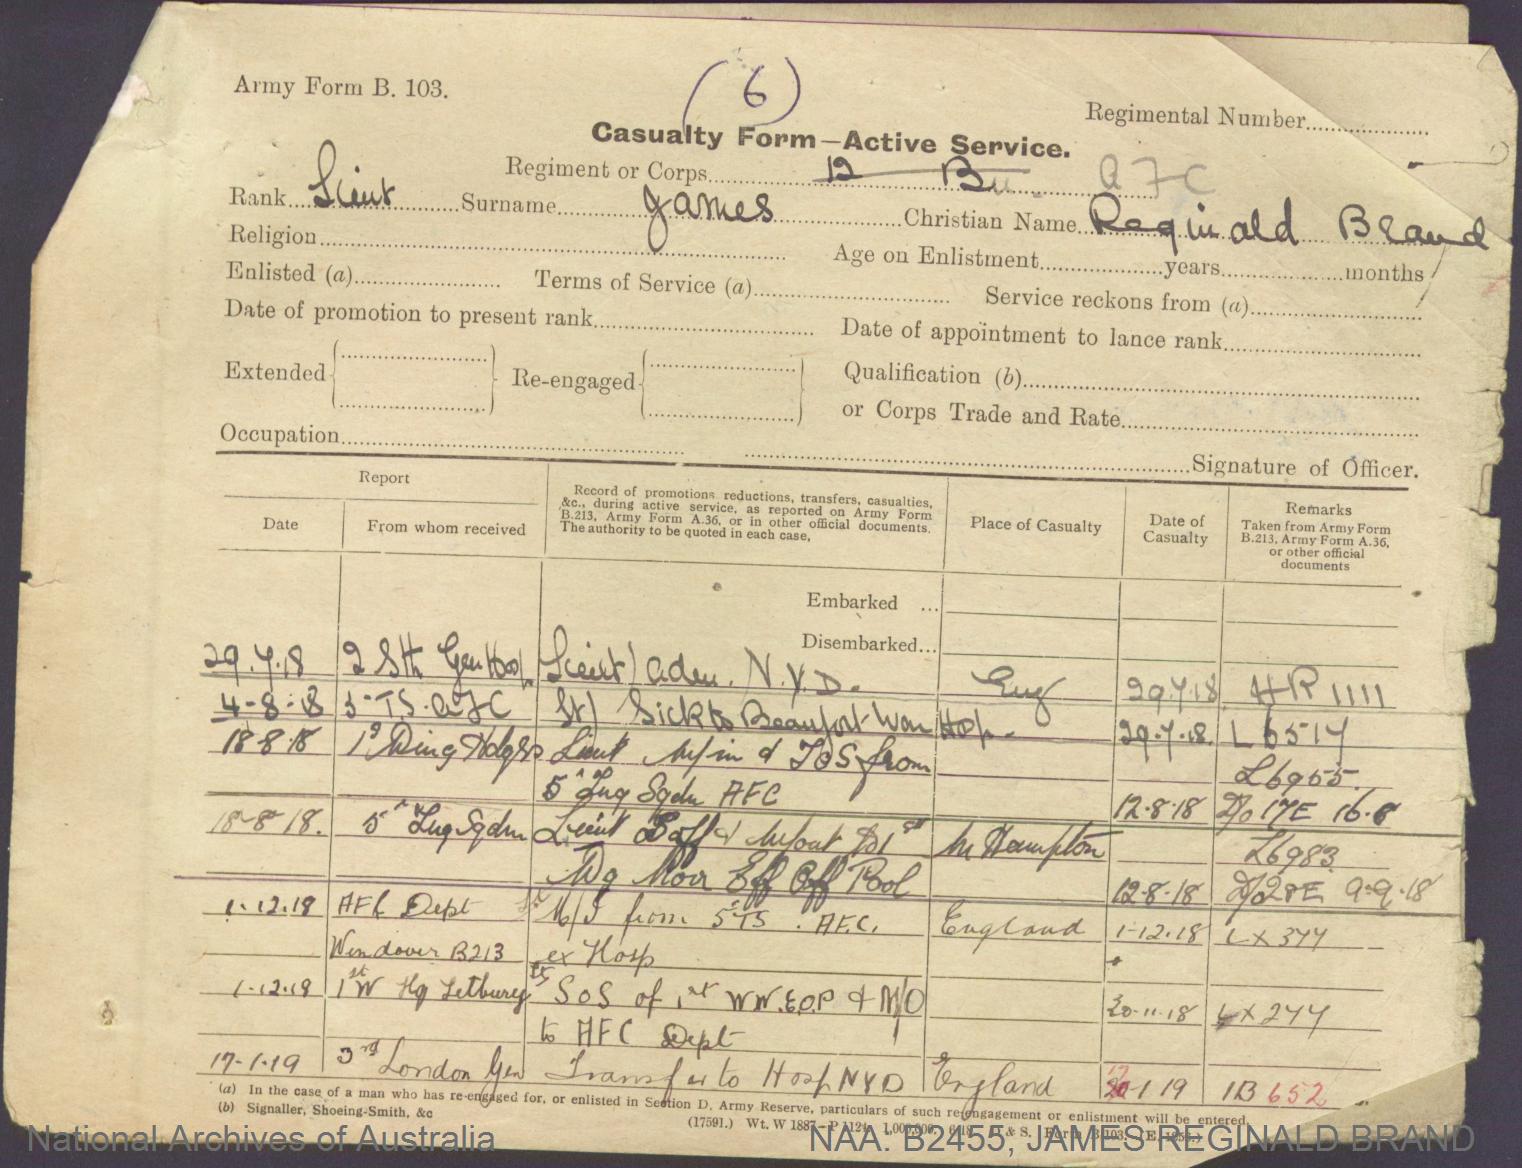 (6)
Army Form B. 103.
Regimental Number
Casualty Form—Active Service.
Regiment or Corps 12 Bn. AFC
Rank Lieut Surname James Christian Name Reginald Brand
Religion Age on Enlistment years months
Enlisted (a) Terms of Service (a) Service reckons from (a)
Date of promotion to present rank Date of appointment to lance rank
Extended Re-engaged Qualification (b)
or Corps Trade and Rate
Occupation Signature of Officer.
Report
Date From whom received
Record of promotions reductions, transfers, casualties,
&c., during active service, as reported on Army Form
B.213, Army Form A.36, or in other official documents.
The authority to be quoted in each case,
Place of Casualty
Date of
Casualty
Remarks
Taken from Army Form
B.213, Army Form A.36,
or other official
documents
Embarked ...
Disembarked...
29.7.18 2 Sth Gen Hosp. Lieut) adm. N.Y.D. Eng 29.7.18 HR 1111
4-8-18 5 TS. AFC Lt) Sick to Beaufort War Hosp. 29.7.18. L6514
18-8-18 1st Wing Hdqrs Lieut M/in & TOS from L6955
5 Trg Sqdn AFC 12-8-18 D/o 17E 16.8
18-8-18. 5 Trg Sqdn Lieut S off & M/out to 1st M Hampton L6983
Wg Non Eff Off Pool 12-8-18 D/o 28E 9-9-18
1-12.18 AFC Dept Lt M/I from 5 TS. AFC. England 1-12.18 LX 344
Wendover B213 ex Hosp
1-12.18 1st W Hq Tetbury Lt SOS of 1st WN.E.O.P & M/O 30-11-18 LX 244
to AFC Dept
17-1-19 3rd London Gen Transfer to Hosp NYD England 1 19 1B 652
(a) In the case of a man who has re-engaged for, or enlisted in Section D, Army Reserve, particulars of such re-engagement or enlistment will be entered.
(b) Signaller, Shoeing-Smith, &c
(17591.) Wt. W 1887—P 1124. 1,000,000. 6/18. & S. Form B.103.
National Archives of Australia NAA: B2455, JAMES REGINALD BRAND